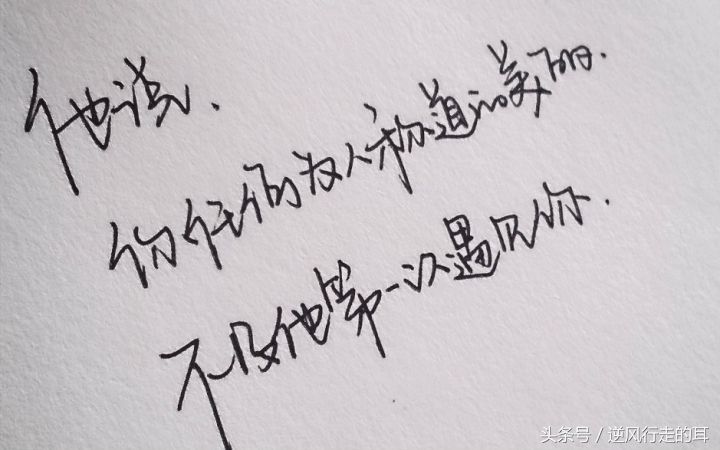 他说、
你任何为人称道的美丽.
不及他第一次遇见你.
头条号 / 逆风行走的耳